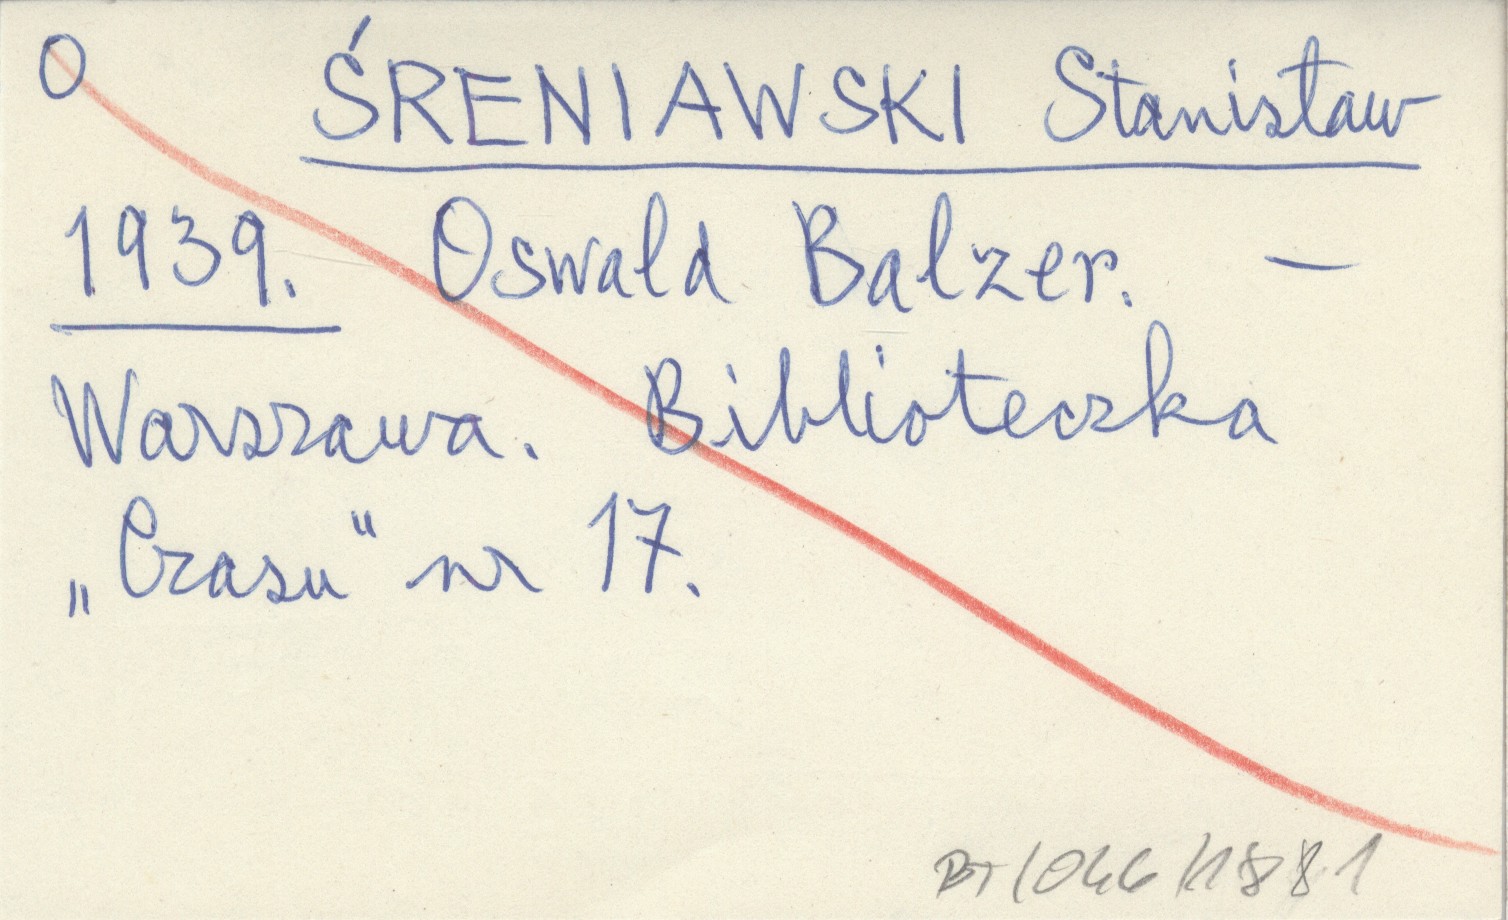 O ŚRENIAWSKI Stanisław
1939. Oswald Balzer. —
Warszawa. Biblioteczka
„Czasu" nr 17.
BT/046/1881